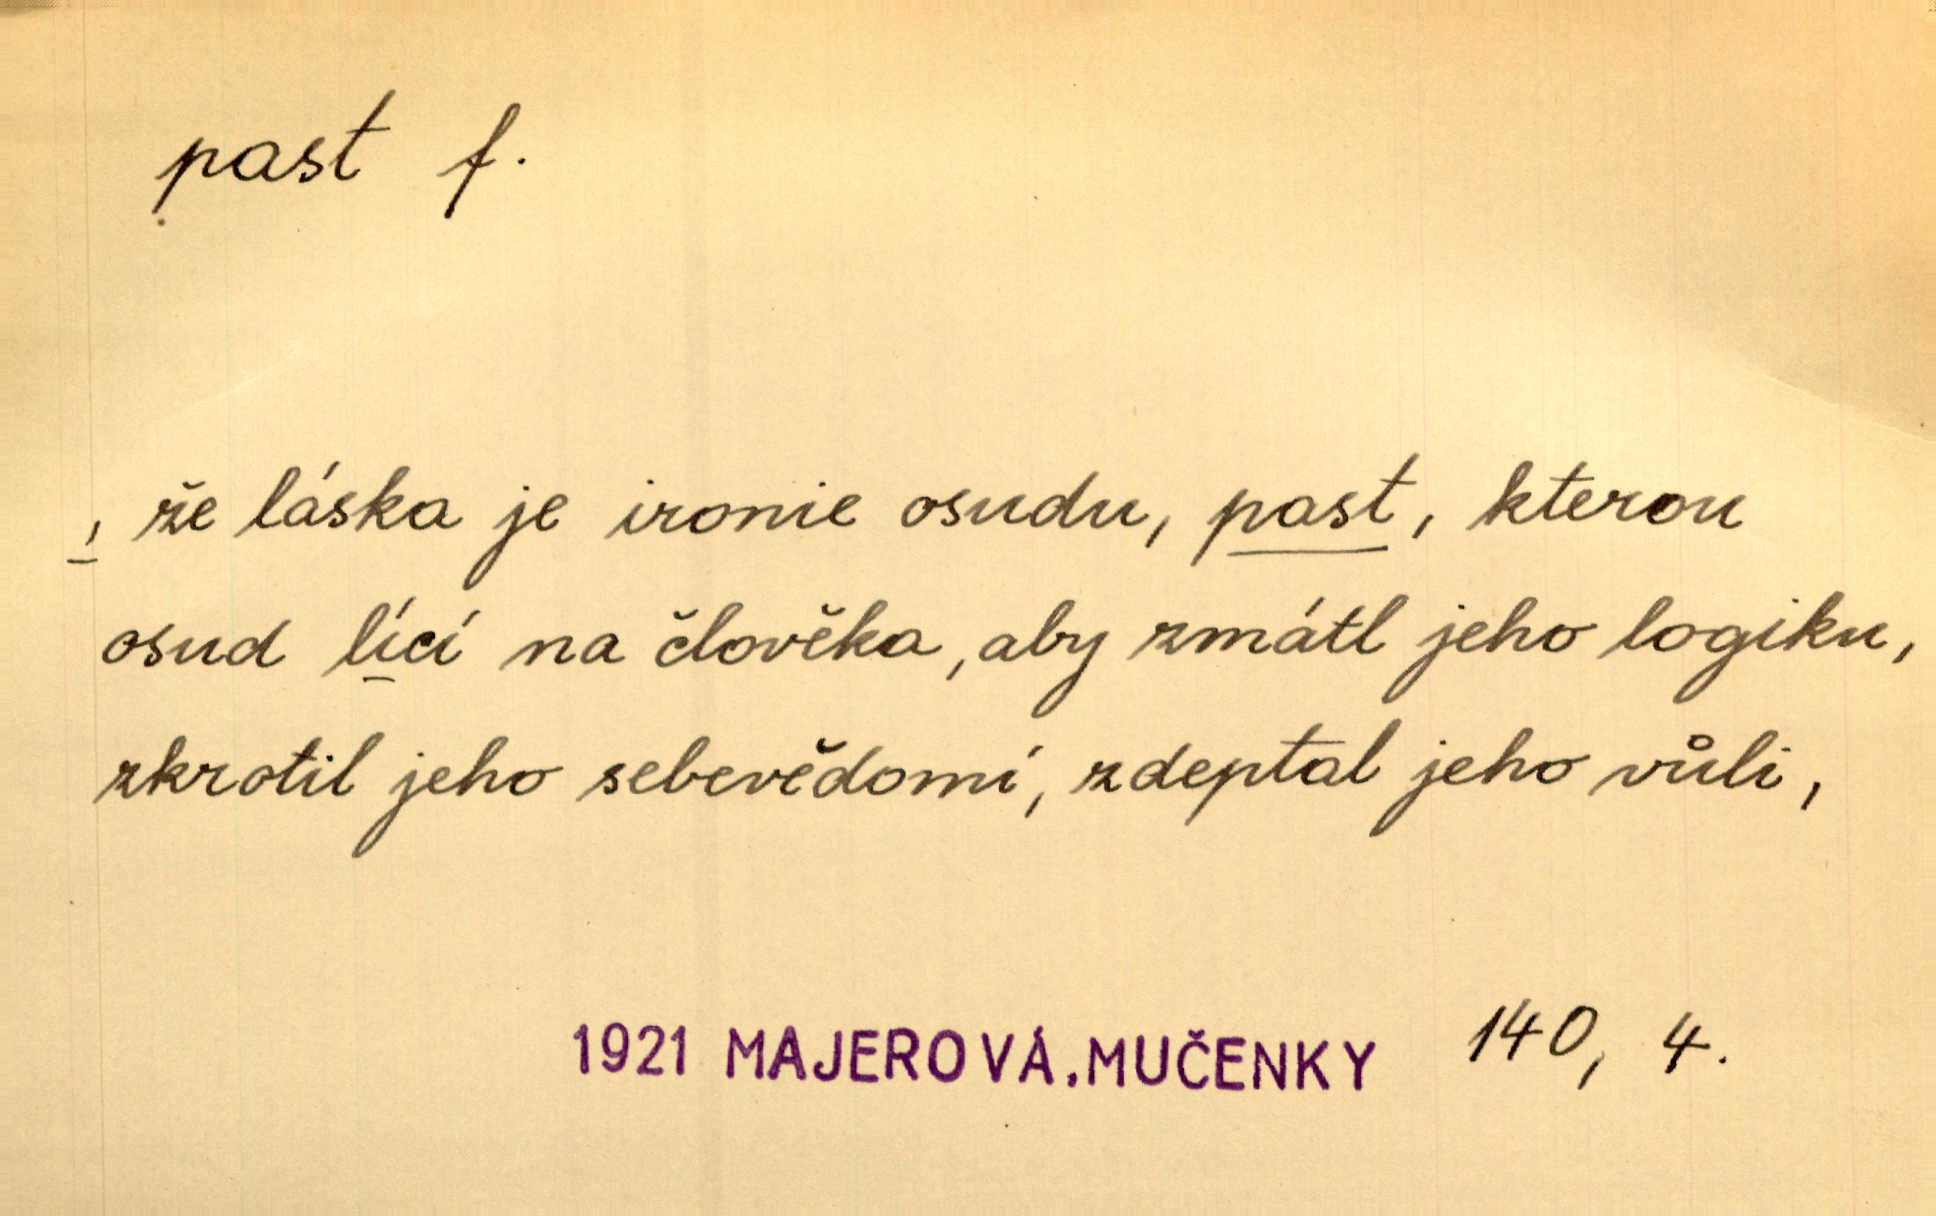 past f.
, že láska je ironie osudu, past, kterou
osud lící na člověka, aby zmátl jeho logiku,
zkrotil jeho sebevědomí, zdeptal jeho vůli,
1921 MAJEROVÁ.MUČENKY 140, 4.